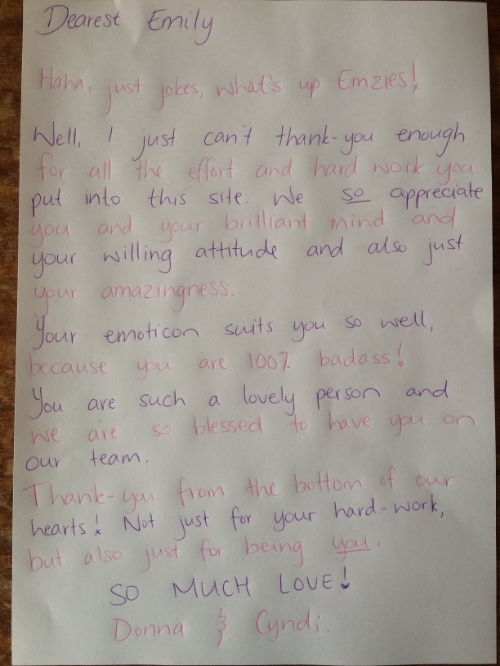 Dearest Emily
Haha, just jokes, what's up Emzies!
Well, I just can't thank-you enough
for all the effort and hard work you
put into this site. We so appreciate
you and your brilliant mind and
your willing attitude and also just
your amazingness.
Your emoticon suits you so well,
because you are 100% badass!
You are such a lovely person and
we are so blessed to have you on
our team.
Thank-you from the bottom of our
hearts! Not just for your hard-work,
but also just for being you.
SO MUCH LOVE!
Donna & Cyndi.